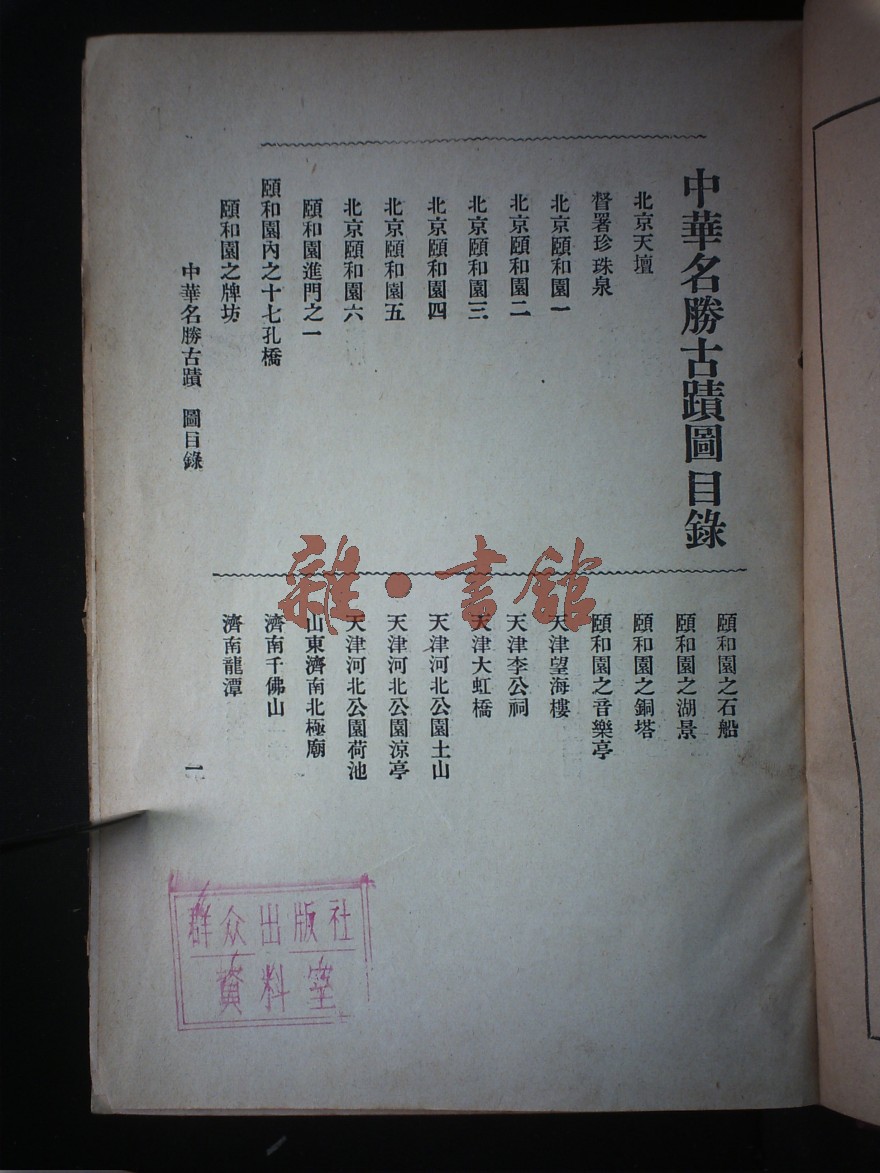 中華名勝古蹟圖目錄
北京天壇
督署珍珠泉
北京頤和園一
北京頤和園二
北京頤和園三
北京頤和園四
北京頤和園五
北京頤和園六
頤和園進門之一
頤和園內之十七孔橋
頤和園之牌坊
頤和園之石船
頤和園之湖景
頤和園之銅塔
頤和園之音樂亭
天津望海樓
天津李公祠
天津大虹橋
天津河北公園土山
天津河北公園涼亭
天津河北公園荷池
山東濟南北極廟
濟南千佛山
濟南龍潭
中華名勝古蹟 圖目錄
一
雜·書館
群众出版社
資料室